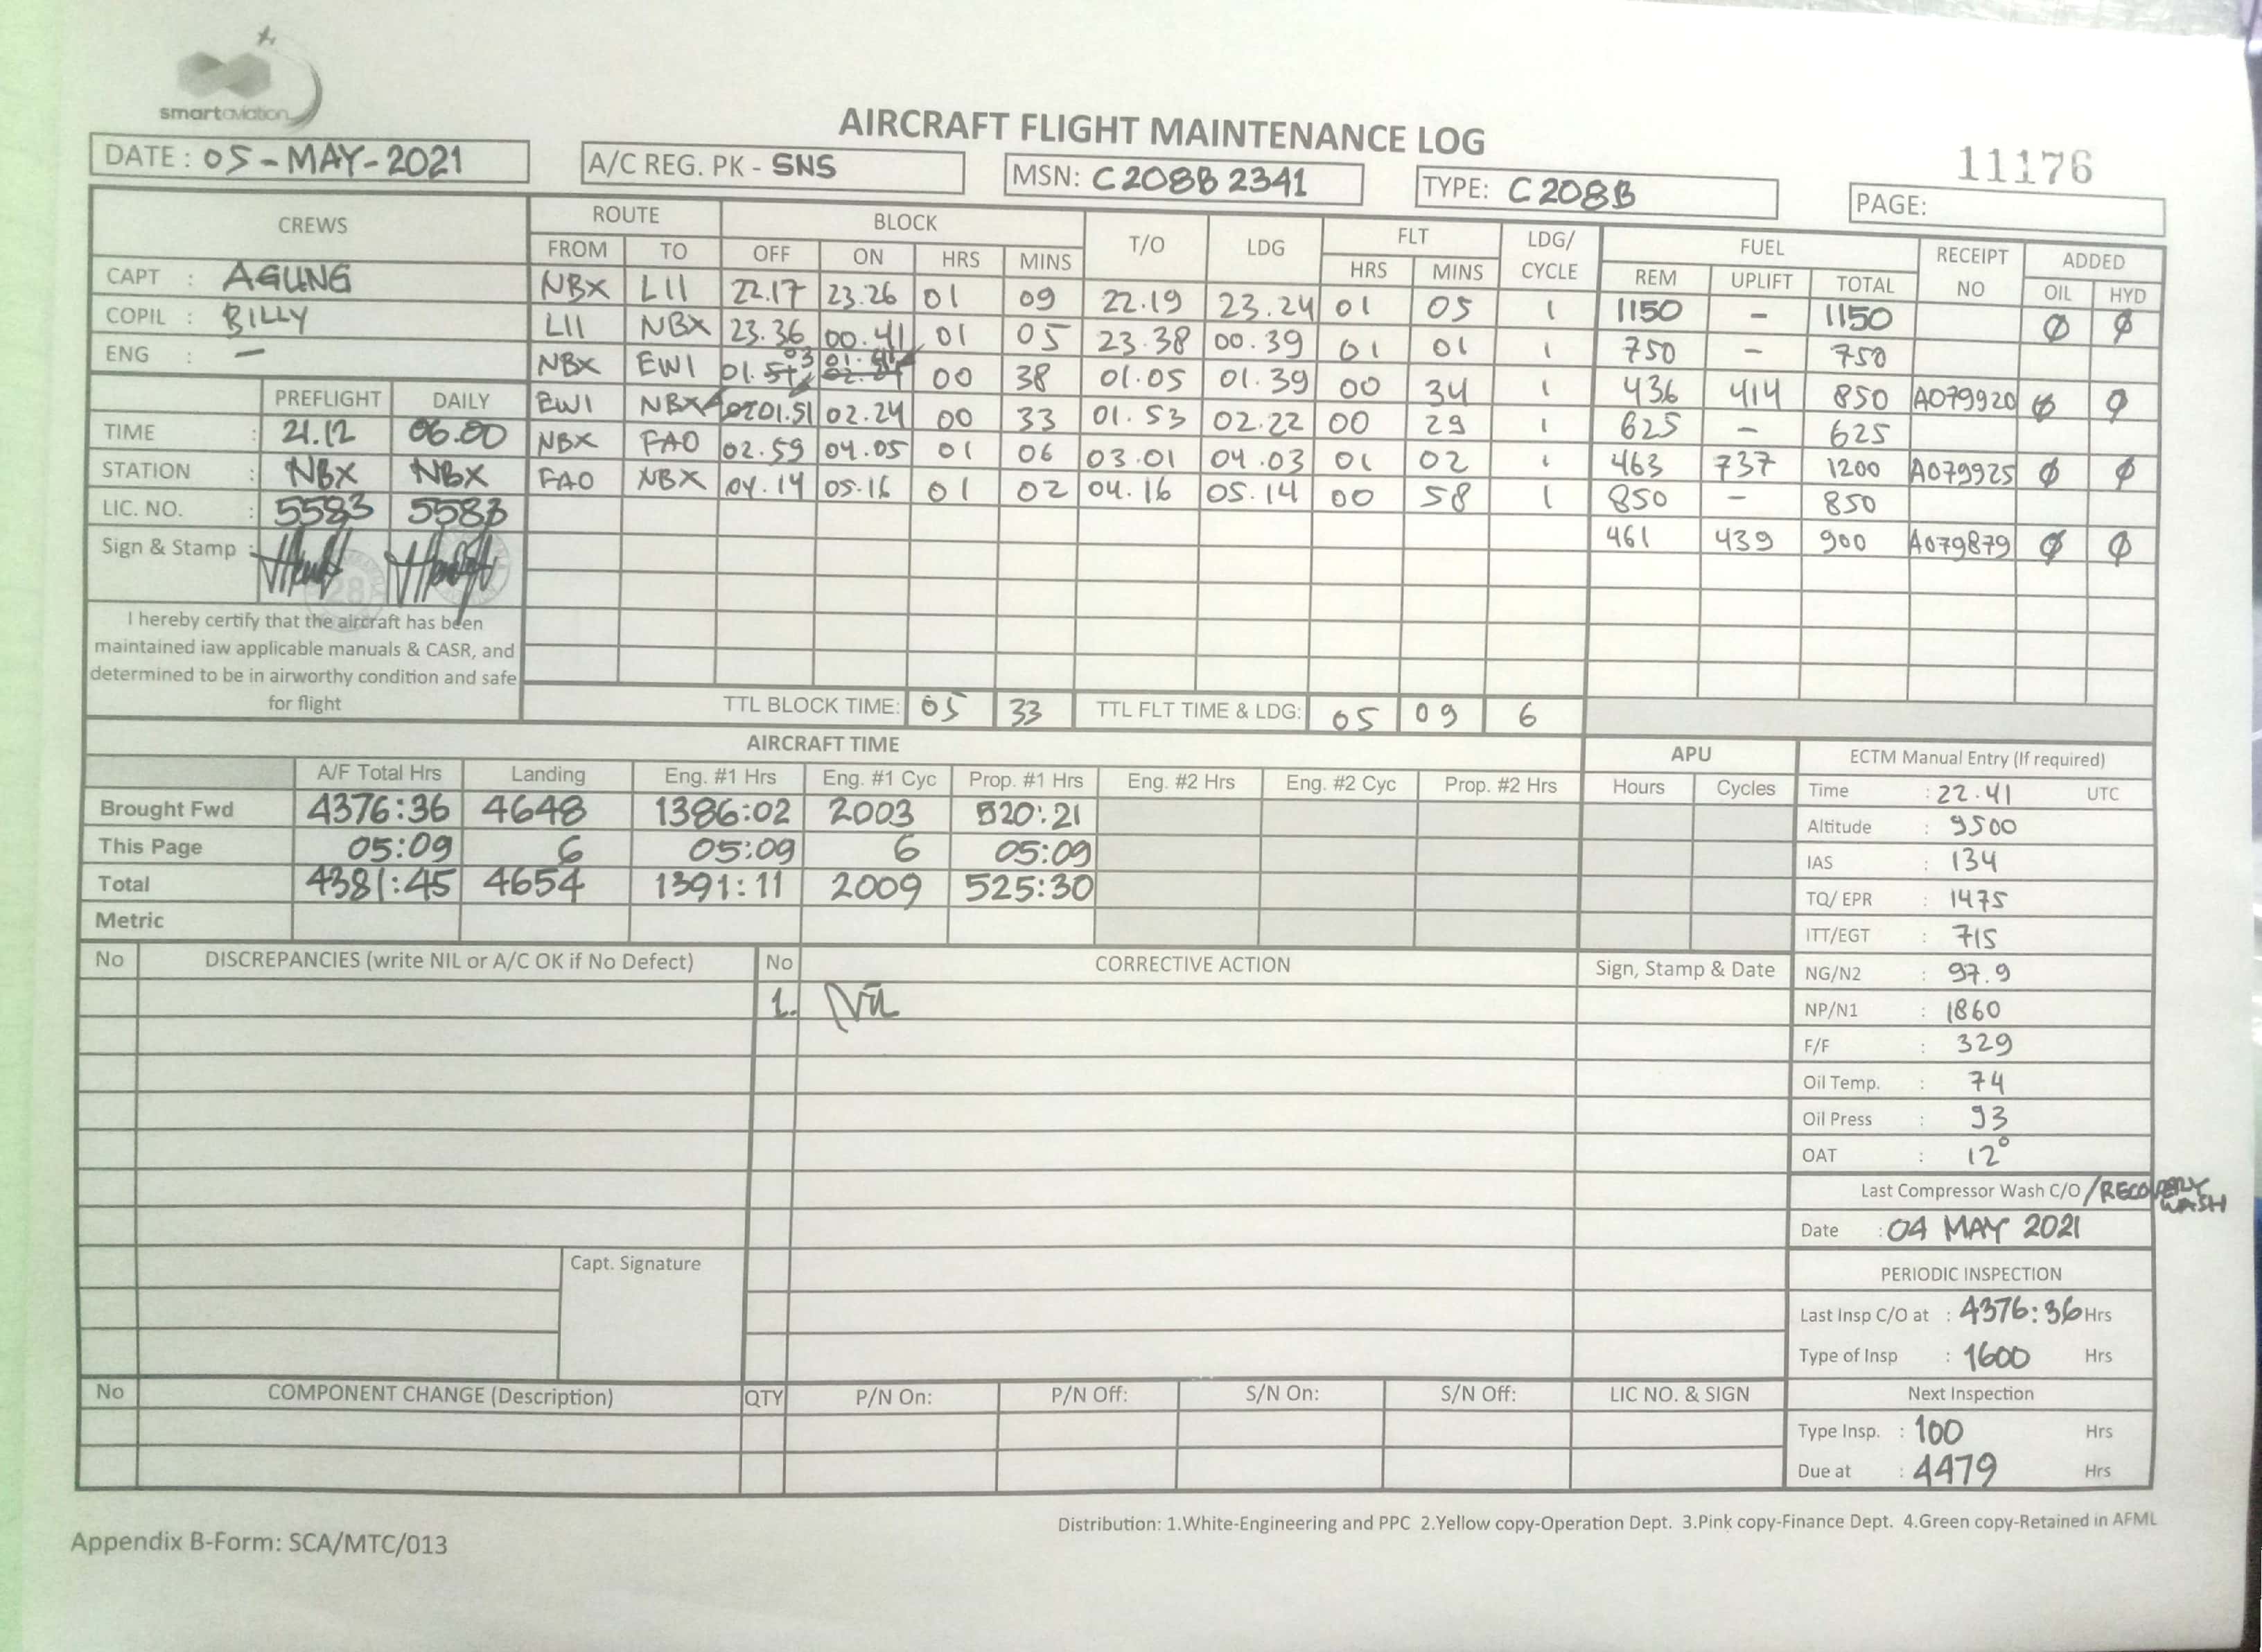 smartaviation
AIRCRAFT FLIGHT MAINTENANCE LOG
11176
DATE : 05-MAY-2021 A/C REG. PK - SNS MSN: C208B 2341 TYPE: C208B PAGE:
CREWS ROUTE BLOCK T/O LDG FLT LDG/ CYCLE FUEL RECEIPT NO ADDED
FROM TO OFF ON HRS MINS HRS MINS REM UPLIFT TOTAL OIL HYD
CAPT : AGUNG
COPIL : BILLY
ENG : -
NBX LII 22.17 23.26 01 09 22.19 23.24 01 05 1 1150 - 1150 Ø Ø
LII NBX 23.36 00.41 01 05 23.38 00.39 01 01 1 750 - 750
NBX EWI 01.03 01.41 00 38 01.05 01.39 00 34 1 436 414 850 A079920 Ø Ø
EWI NBX 01.51 02.24 00 33 01.53 02.22 00 29 1 625 - 625
NBX FAO 02.59 04.05 01 06 03.01 04.03 01 02 1 463 737 1200 A079925 Ø Ø
FAO NBX 04.14 05.16 01 02 04.16 05.14 00 58 1 850 - 850
461 439 900 A079879 Ø Ø
PREFLIGHT DAILY
TIME : 21.12 06.00
STATION : NBX NBX
LIC. NO. : 5583 5583
Sign & Stamp :
I hereby certify that the aircraft has been
maintained iaw applicable manuals & CASR, and
determined to be in airworthy condition and safe
for flight
TTL BLOCK TIME: 05 33 TTL FLT TIME & LDG: 05 09 6
AIRCRAFT TIME APU
A/F Total Hrs Landing Eng. #1 Hrs Eng. #1 Cyc Prop. #1 Hrs Eng. #2 Hrs Eng. #2 Cyc Prop. #2 Hrs Hours Cycles
Brought Fwd 4376:36 4648 1386:02 2003 520:21
This Page 05:09 6 05:09 6 05:09
Total 4381:45 4654 1391:11 2009 525:30
Metric
ECTM Manual Entry (If required)
Time : 22.41 UTC
Altitude : 9500
IAS : 134
TQ/ EPR : 1475
ITT/EGT : 715
NG/N2 : 97.9
NP/N1 : 1860
F/F : 329
Oil Temp. : 74
Oil Press : 93
OAT : 12°
Last Compressor Wash C/O /RECOVERY WASH
Date : 04 MAY 2021
PERIODIC INSPECTION
Last Insp C/O at : 4376:36 Hrs
Type of Insp : 1600 Hrs
Next Inspection
Type Insp. : 100 Hrs
Due at : 4479 Hrs
No DISCREPANCIES (write NIL or A/C OK if No Defect) No CORRECTIVE ACTION Sign, Stamp & Date
1. Nil
Capt. Signature
No COMPONENT CHANGE (Description) QTY P/N On: P/N Off: S/N On: S/N Off: LIC NO. & SIGN
Distribution: 1.White-Engineering and PPC 2.Yellow copy-Operation Dept. 3.Pink copy-Finance Dept. 4.Green copy-Retained in AFML
Appendix B-Form: SCA/MTC/013